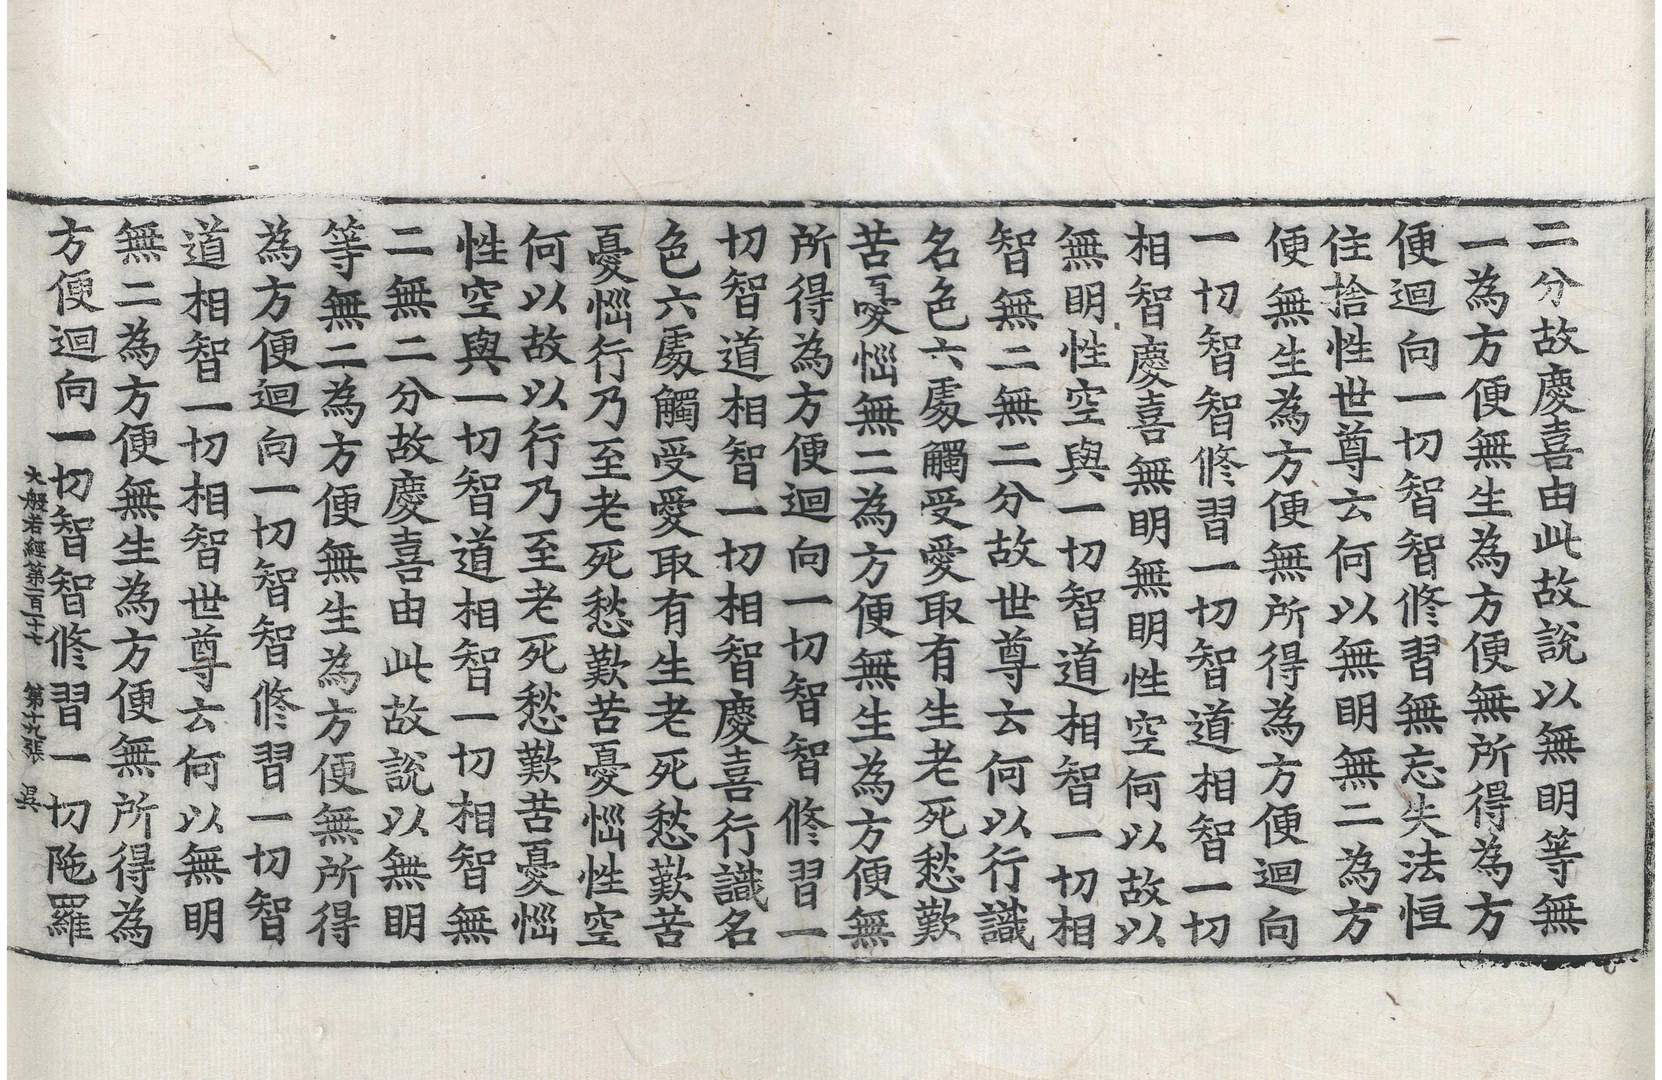 二分故慶喜由此故說以無明等無
一為方便無生為方便無所得為方
便迴向一切智智修習無忘失法恒
住捨性世尊云何以無明無二為方
便無生為方便無所得為方便迴向
一切智智修習一切智道相智一切
相智慶喜無明無明性空何以故以
無明性空與一切智道相智一切相
智無二無二分故世尊云何以行識
名色六處觸受愛取有生老死愁歎
苦憂惱無二為方便無生為方便無
所得為方便迴向一切智智修習一
切智道相智一切相智慶喜行識名
色六處觸受愛取有生老死愁歎苦
憂惱行乃至老死愁歎苦憂惱性空
何以故以行乃至老死愁歎苦憂惱
性空與一切智道相智一切相智無
二無二分故慶喜由此故說以無明
等無二為方便無生為方便無所得
為方便迴向一切智智修習一切智
道相智一切相智世尊云何以無明
無二為方便無生為方便無所得為
方便迴向一切智智修習一切陁羅
大般若經第一百十七 第十九張 昃